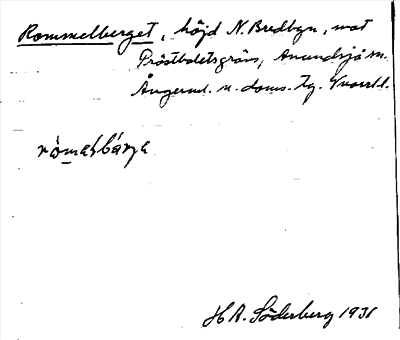 Rommelberget, höjd N. Bredbyn, mot
Prästbolets gräns, Anundsjö sn.
Ångerml. n. doms. tg. Vnorrl. l.
H A. Söderberg 1931